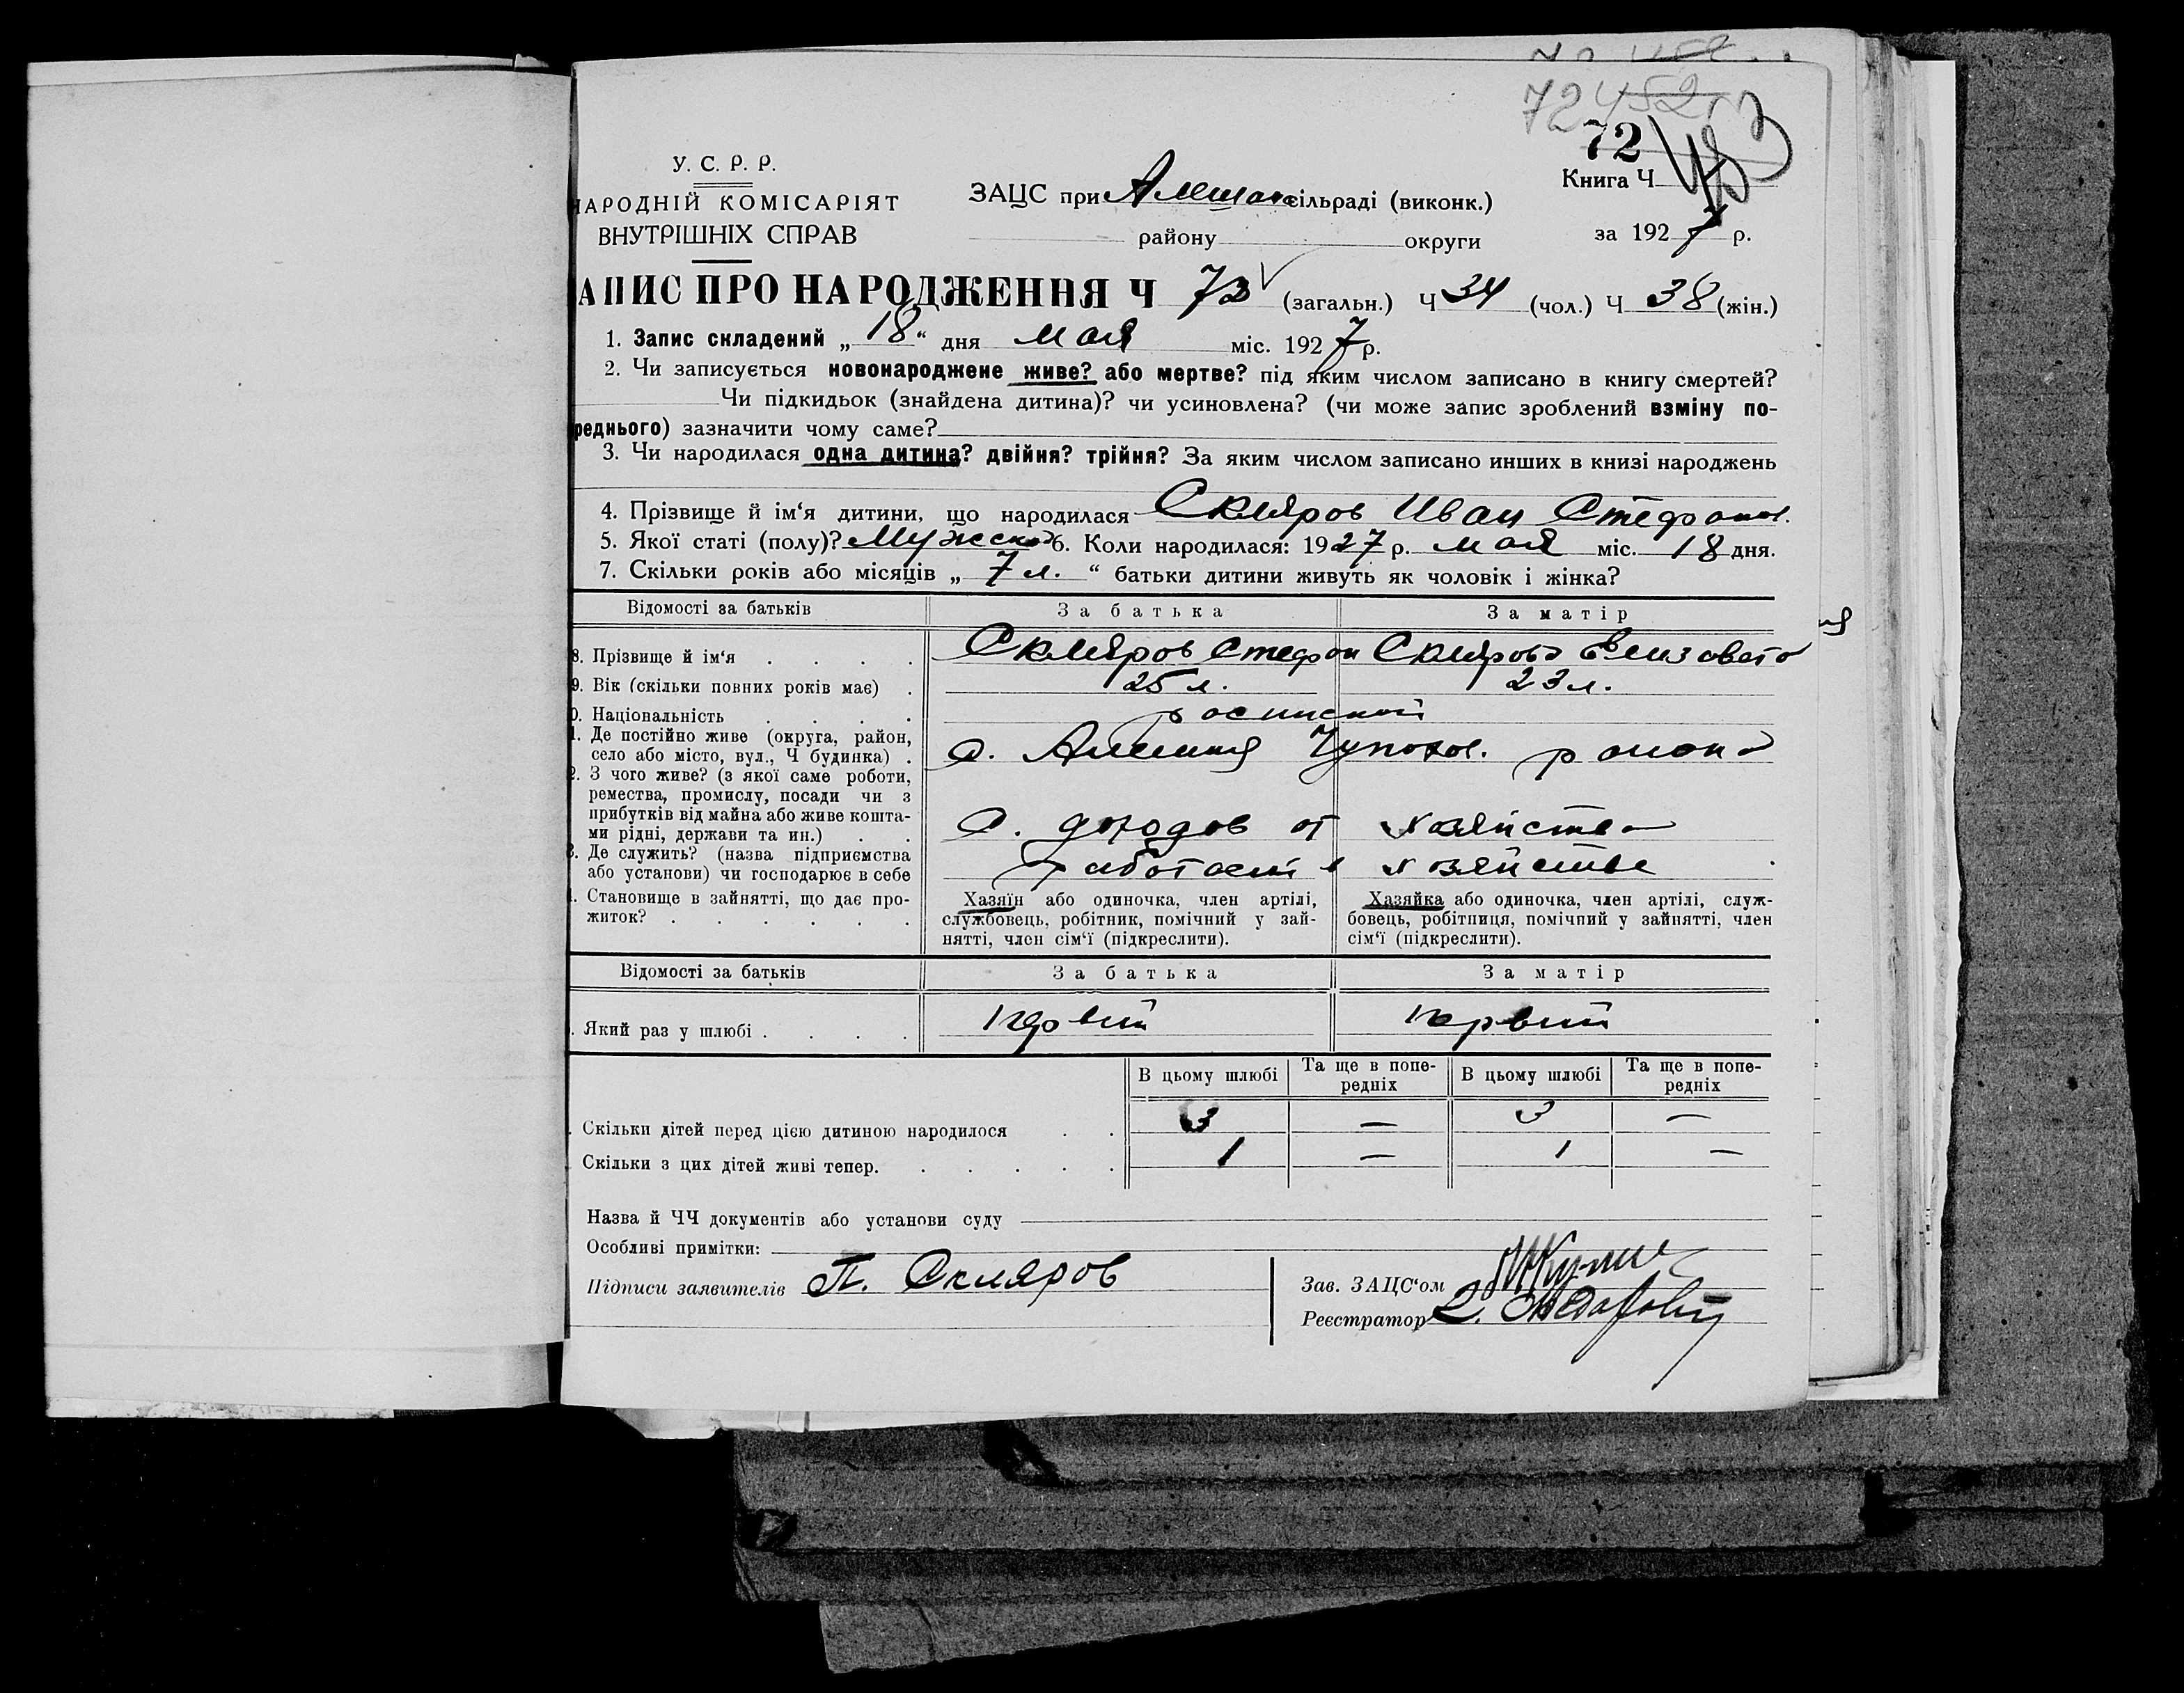 72 452
72
У. С. Р. Р.
НАРОДНІЙ КОМІСАРІЯТ
ВНУТРІШНІХ СПРАВ
ЗАЦС при сільраді (виконк.)
району округи
Книга Ч 453
за 1927 р.
АПИС ПРО НАРОДЖЕННЯ Ч 72 (загальн.) Ч 34 (чол.) Ч 38 (жін.)
1. Запис складений „ 18 “ дня мая міс. 1927 р.
2. Чи записується новонароджене живе? або мертве? під яким числом записано в книгу смертей?
Чи підкидьок (знайдена дитина)? чи усиновлена? (чи може запис зроблений взміну по-
реднього) зазначити чому саме?
3. Чи народилася одна дитина? двійня? трійня? За яким числом записано инших в книзі народжень
4. Прізвище й ім‘я дитини, що народилася Скляров Иван Стефанов.
5. Якої статі (полу)? Мужской 6. Коли народилася: 1927 р. мая міс. 18 дня.
7. Скільки років або місяців „ 7 л. “ батьки дитини живуть як чоловік і жінка?
Відомості за батьків За батька За матір
8. Прізвище й ім‘я . . . . Скляров Стефан Склярова Елизавета
9. Вік (скільки повних років має) . 25 л. 23 л.
0. Національність . . . .
1. Де постійно живе (округа, район,
село або місто, вул., Ч будинка) . с. района
2. З чого живе? (з якої саме роботи,
ремества, промислу, посади чи з
прибутків від майна або живе кошта-
ми рідні, держави та ин.) . . С. доходов от хозяйства
3. Де служить? (назва підприємства
або установи) чи господарює в себе работает в хозяйстве
. Становище в зайнятті, що дає про-
житок? . . . . . .
Хазяїн або одиночка, член артілі,
службовець, робітник, помічний у зай-
нятті, член сім‘ї (підкреслити).
Хазяйка або одиночка, член артілі, служ-
бовець, робітниця, помічний у зайнятті, член
сім‘ї (підкреслити).
Відомості за батьків За батька За матір
. Який раз у шлюбі . . . . первый первый
В цьому шлюбі Та ще в попе-
редніх В цьому шлюбі Та ще в попе-
редніх
. Скільки дітей перед цією дитиною народилося . . 3 — 3 —
Скільки з цих дітей живі тепер. . . . . . 1 — 1 —
Назва й ЧЧ документів або установи суду
Особливі примітки:
Підписи заявителів П. Скляров
Зав. ЗАЦС‘ом
Реєстратор